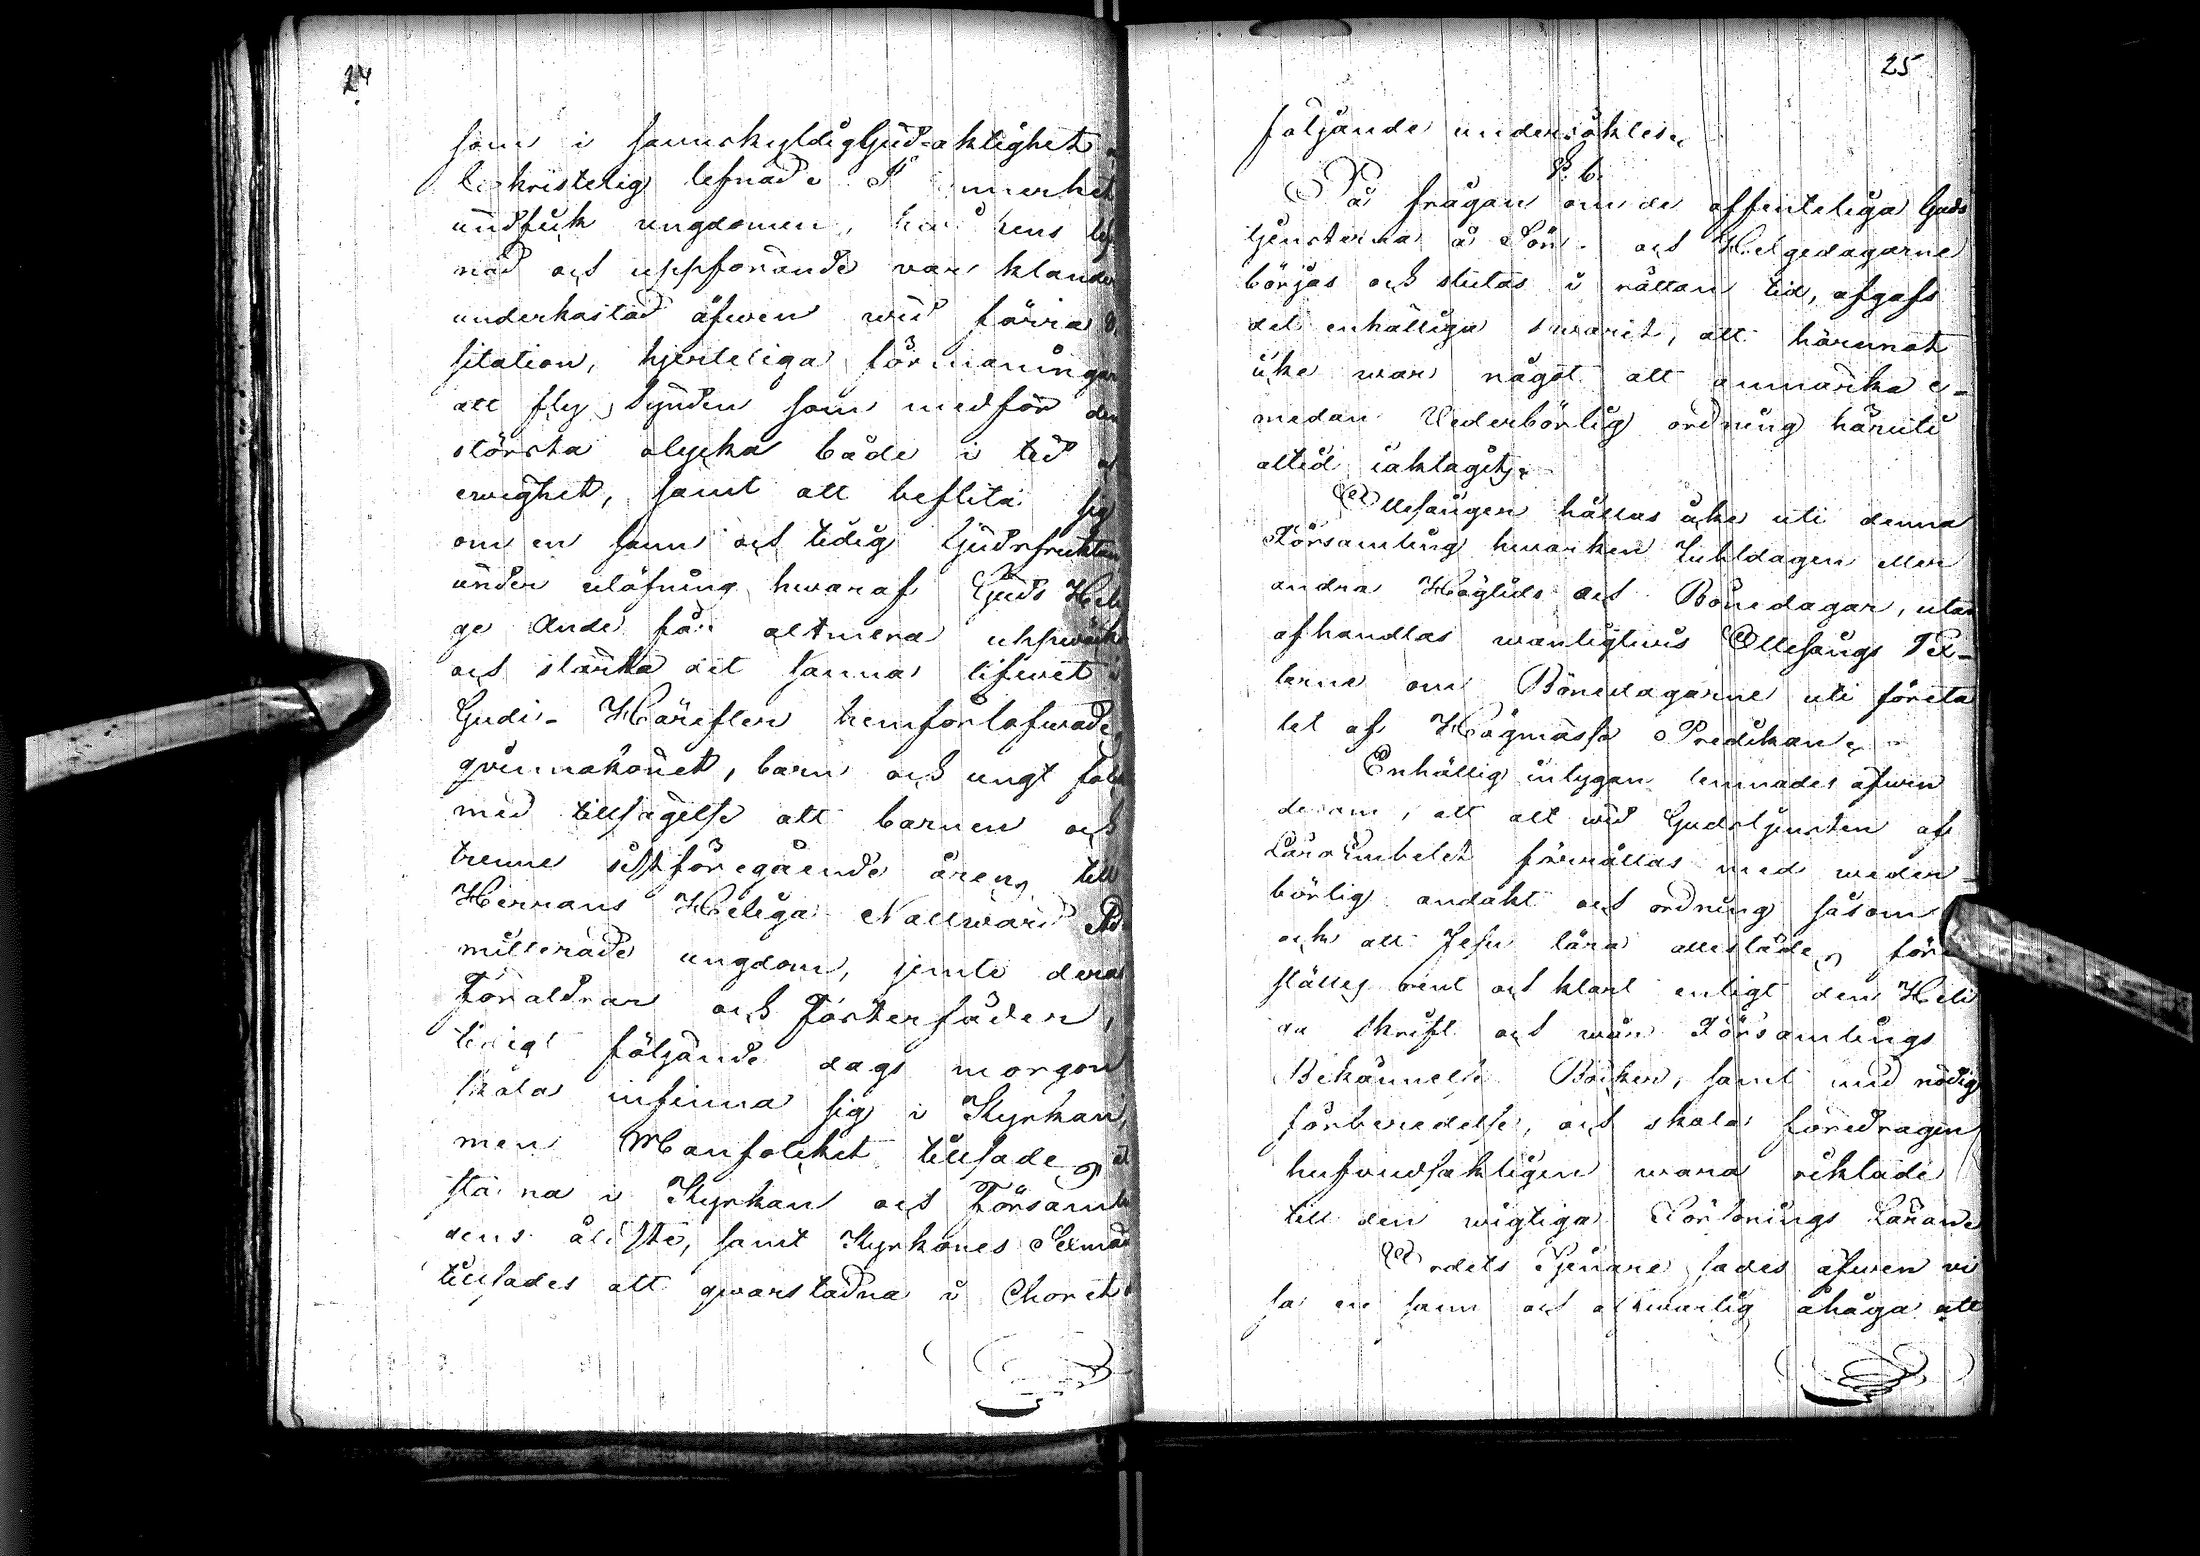 24
som i samskyldig Gud-aktighet
kristelig lefnad.
undfick ungdomen, hvars lef-
nad och uppförande var klander
underkastad äfwen wid förra
sitation, hjerteliga förmaningar
att fly synden som medför den
största olycka både i tid
ewighet, samt att beflita sig
om en sann och tidig Gudsfruktan
under utöfning hwaraf Guds Heli-
ge Ande får altmera uppwäcka
och stärka det sanna lifwet i
Gudi. Härefter hemförlofwades
qvinnokönet, barn och ungt folk
med tillsägelse att barnen och
trenne sistföregående årens till
Herrans Heliga Nattward Ad-
mitterade ungdom, jemte deras
Föräldrar och Fosterfäder,
tidigt följande dags morgon
skola infinna sig i Kyrkan,
men Manfolcket tillsades at
stanna i Kyrkan och Församlin
dens äldste, samt Kyrkones Sexmän
tillsades att qwarstadna i Choret
25
följande undersöktes.
§. 6.
På frågan om de offenteliga Guds
tjensterna å Sön- och Helgedagarne
börjas och slutas i rättan tid, afgafs
det enhälliga swaret, att häremot
icke war något att anmärka e-
medan Wederbörlig ordning häruti
altid iakttagits.
Ottesången hållas icke uti denna
Församling hwarken Juhldagen eller
andra Högtids och Bönedagar, utan
afhandlas wanligtwis Ottesångs Tex-
terne om Bönedagarne uti företa
let af Högmässo Predikan.
Enhällig intygan lemnades äfwen
derom, att alt wid Gudstjensten af
Läroembetet förrättas med weder-
börlig andakt och ordning såsom
ock att Jesu lära allestädes före
ställes rent och klart enligt den Heli
ga Skrift och wår Församlings
Bekännelse Böcker, samt med nödig
förberedelse, och skola föredragen
hufwudsakligen wara riktade
till den wigtiga Försonings Läran.
Ordets Tjenare sades äfwen wi
sa en sann och alwarlig åhåga att